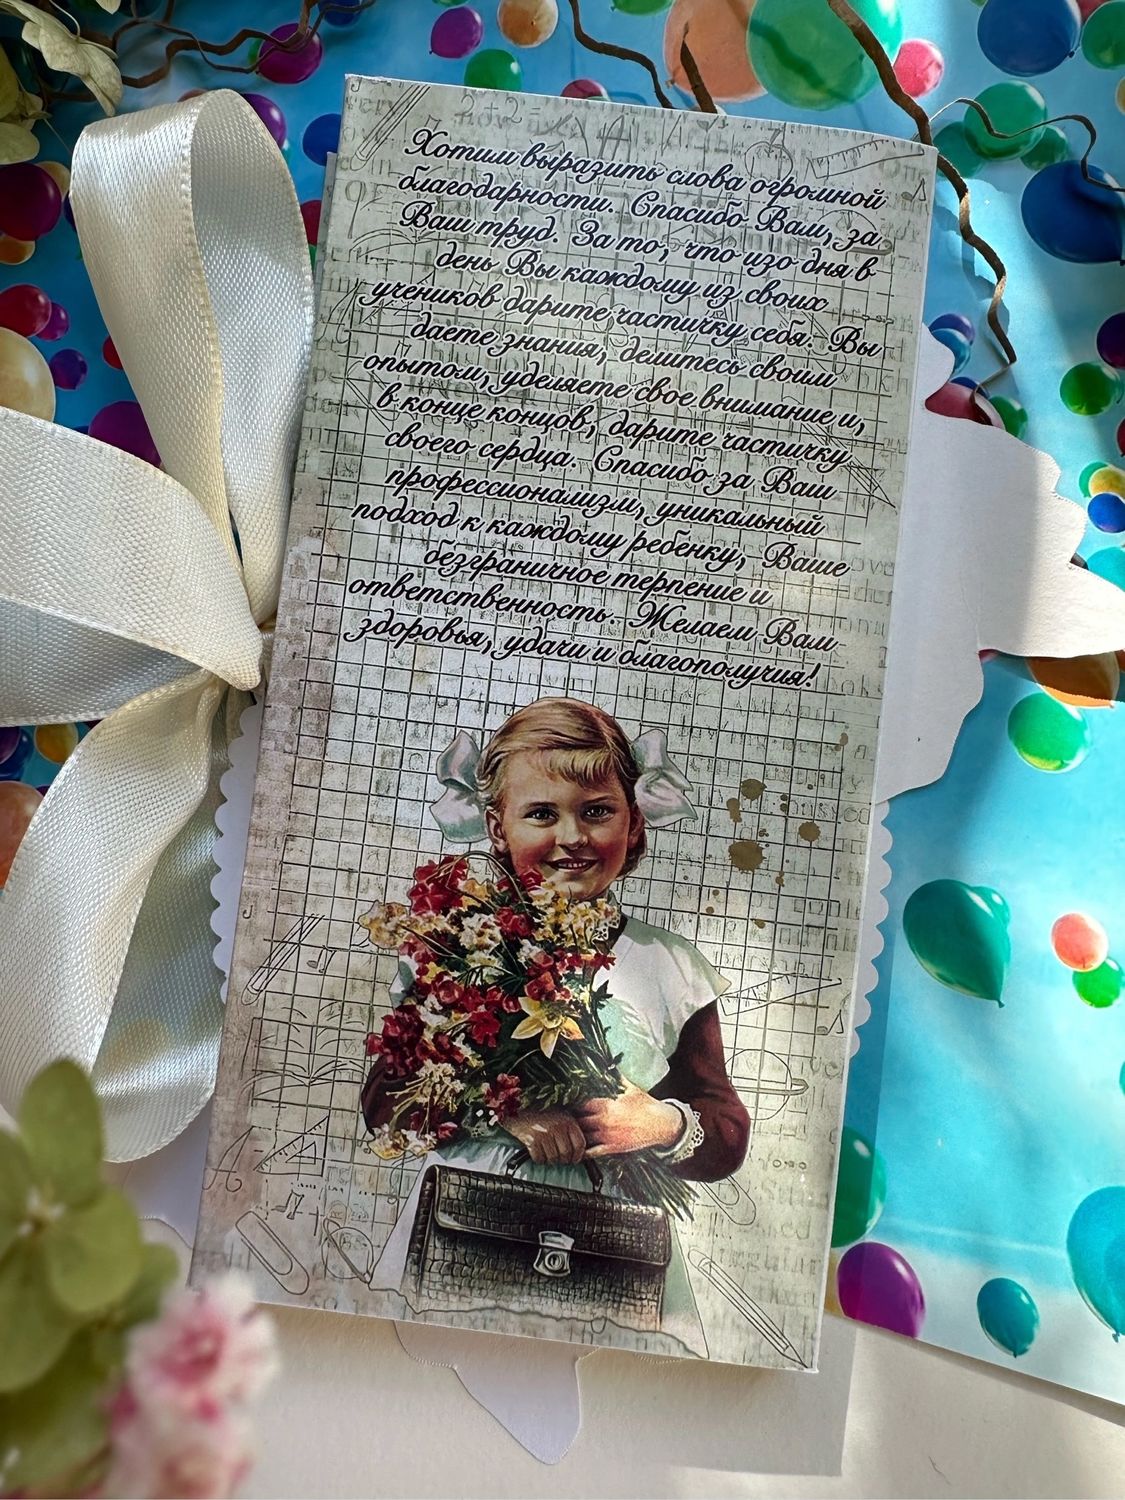 Хотим выразить слова огромной
благодарности. Спасибо Вам, за
Ваш труд. За то, что изо дня в
день Вы каждому из своих
учеников дарите частичку себя. Вы
даете знания, делитесь своим
опытом, уделяете свое внимание и,
в конце концов, дарите частичку
своего сердца. Спасибо за Ваш
профессионализм, уникальный
подход к каждому ребенку, Ваше
безграничное терпение и
ответственность. Желаем Вам
здоровья, удачи и благополучия!
2+2=